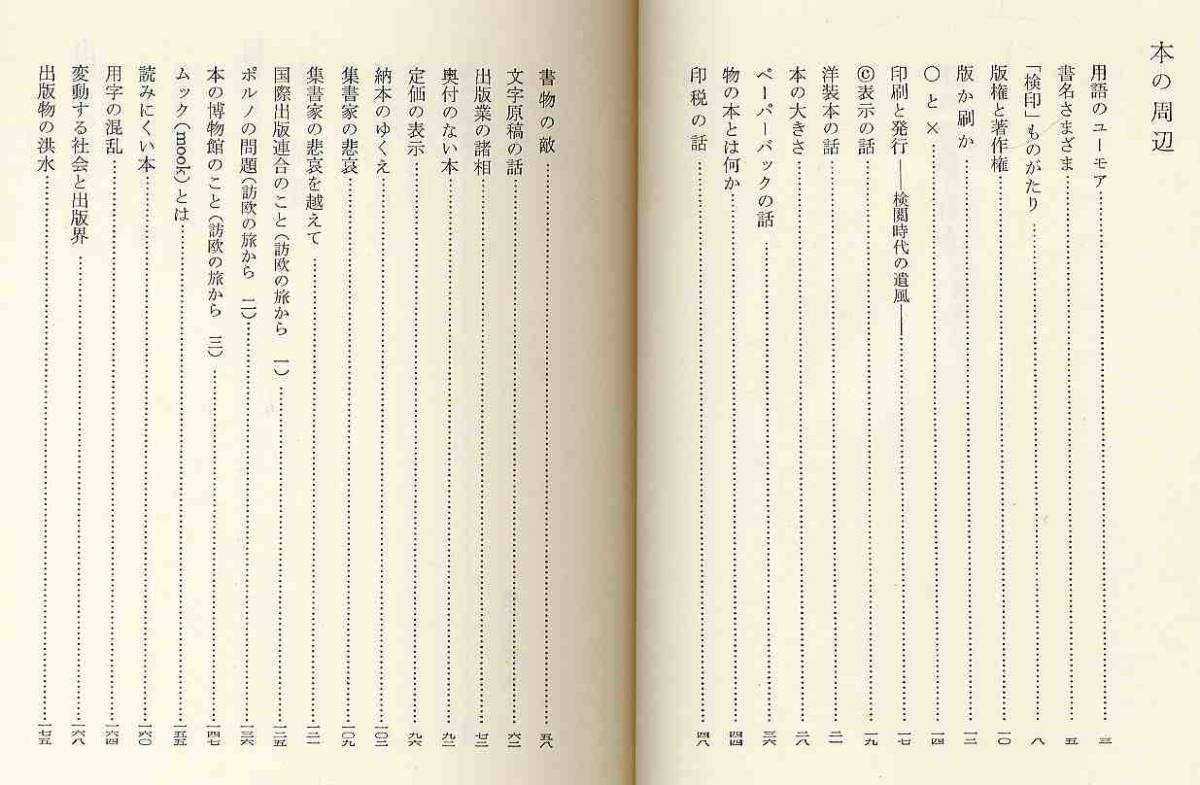 本の周辺
用語のユーモア……三
書名さまざま……五
「検印」ものがたり……八
版権と著作権……一〇
版か刷か……一二
〇と×……一四
印刷と発行――検閲時代の遺風――……一七
©表示の話……一九
洋装本の話……二一
本の大きさ……二八
ペーパーバックの話……三六
物の本とは何か……四四
印税の話……四八
書物の敵……五八
文字原稿の話……六二
出版業の諸相……七二
奥付のない本……九二
定価の表示……九六
納本のゆくえ……一〇二
集書家の悲哀……一〇九
集書家の悲哀を越えて……一二一
国際出版連合のこと（訪欧の旅から 一）……一二五
ポルノの問題（訪欧の旅から 二）……一三六
本の博物館のこと（訪欧の旅から 三）……一四七
ムック（mook）とは……一五五
読みにくい本……一六〇
用字の混乱……一六四
変動する社会と出版界……一六八
出版物の洪水……一七五